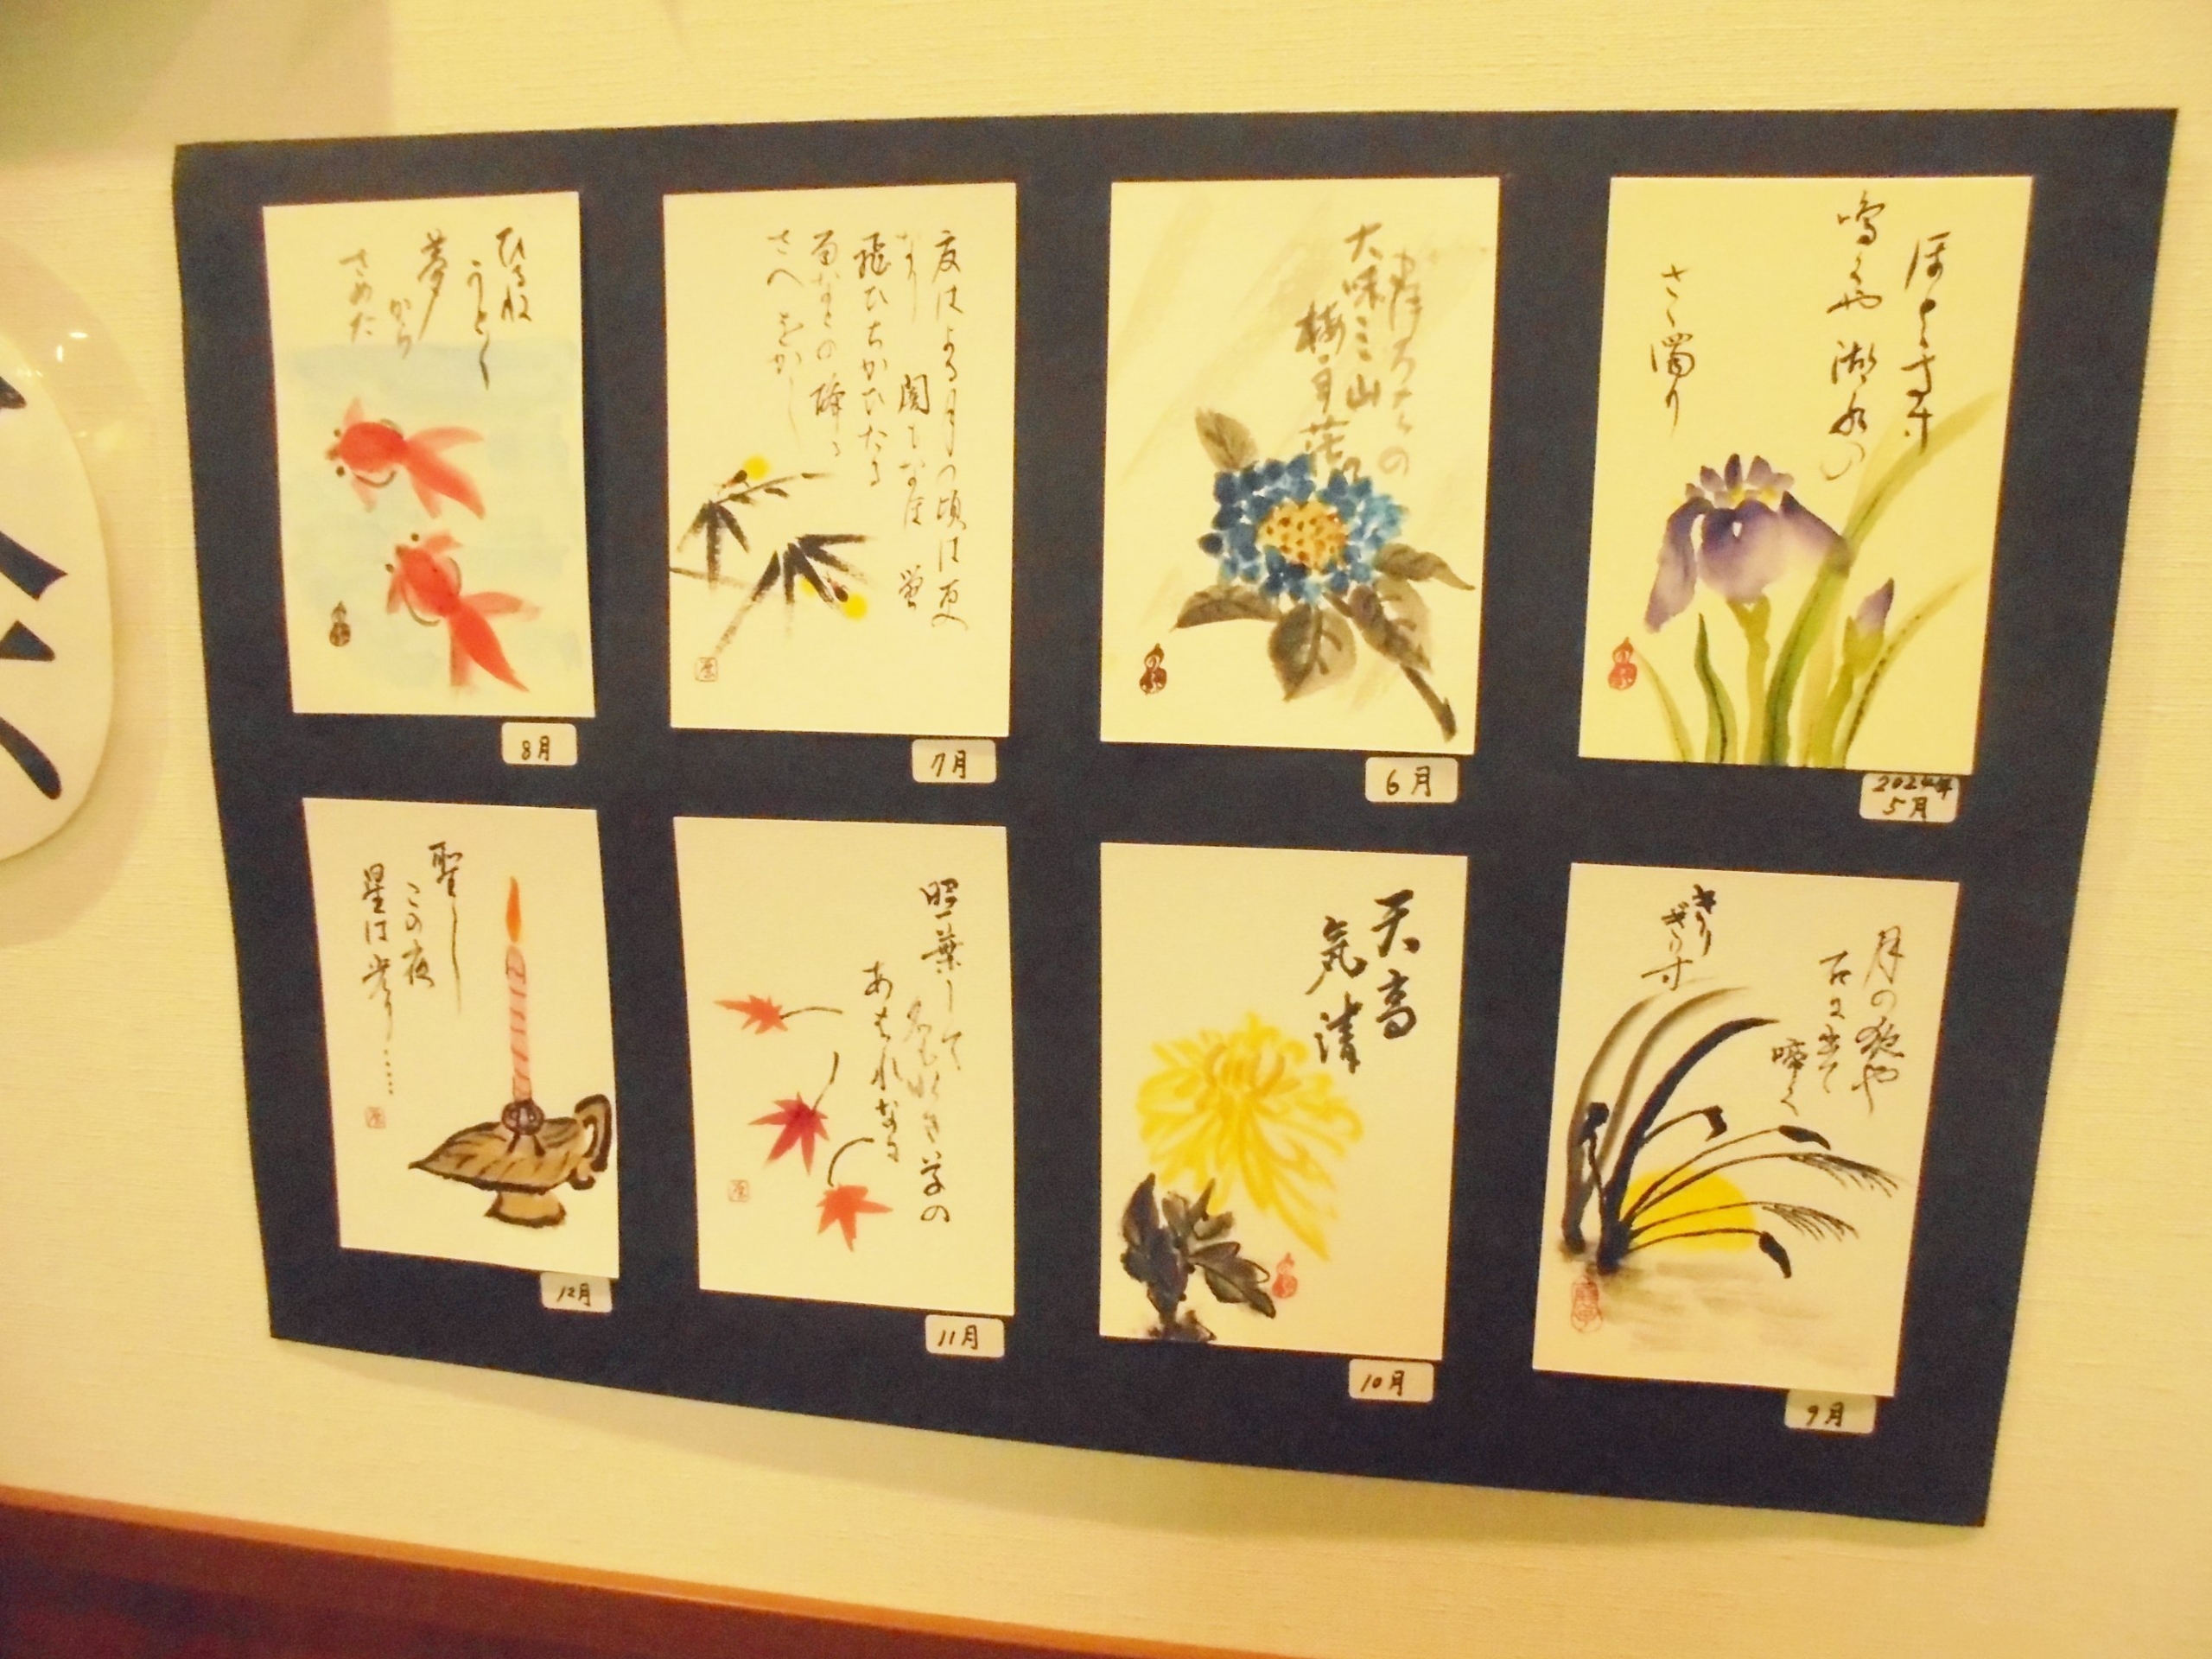 ほとゝぎす
鳴くや湖水の
さゝ濁り
2024年
5月
6月
夏はよる月の頃は更
なり 闇もなほ 蛍
飛ひちかひたる
雨なとの降る
さへをかし
7月
ひるね
うと〱
夢
から
さめた
8月
月の夜や
石に出て
啼く
きり
ぎりす
9月
天高
気清
10月
照葉して
名もなき草の
あはれなる
11月
聖し
この夜
星は光り……
12月